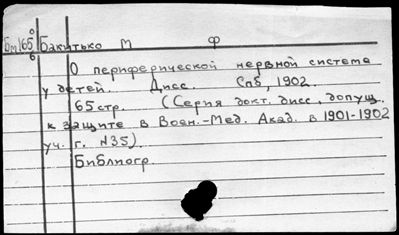 Бм165 Бакитько М Ф
О периферической нервной система
у детей. Дисс. Спб, 1902.
65 стр. (Серия докт. дисс, допущ.
к защите в Воен.-Мед. Акад. в 1901-1902
уч. г. N35).
Библиогр